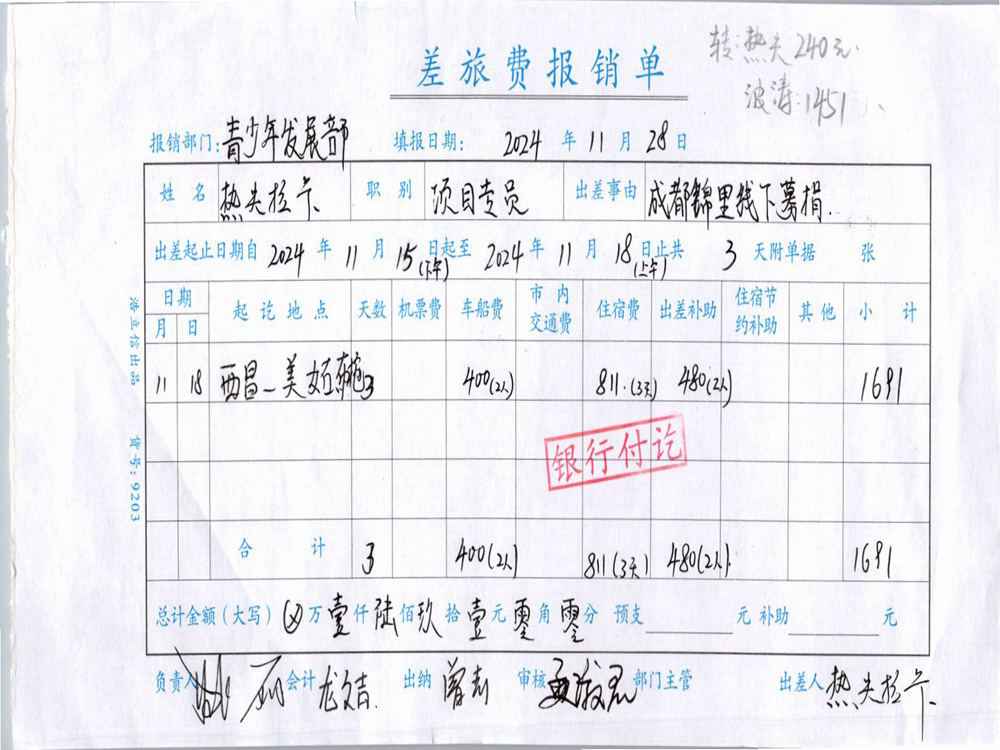 转:热夫240元.
差旅费报销单
波涛:1451
报销部门:青少年发展部 填报日期: 2024 年 11 月 28 日
姓名 热夫拉卡 职别 项目专员 出差事由 成都锦里线下募捐.
出差起止日期自 2024 年 11 月 15 日起至 2024 年 11 月 18 日止共 3 天附单据 张
(下午) (上午)
日期 起讫地点 天数 机票费 车船费 市内交通费 住宿费 出差补助 住宿节约补助 其他 小计
月 日
11 18 西昌-美 3 400(2人) 811.(3天) 480(2人) 1691
银行付讫
合计 3 400(2人) 811(3天) 480(2人) 1691
总计金额(大写) 万壹仟陆佰玖拾壹元零角零分 预支 元 补助 元
负责人 会计 出纳 审核 部门主管 出差人 热夫拉卡
浩立信出品 货号:9203